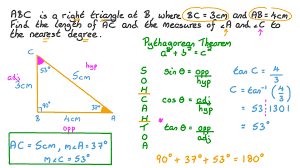 ABC is a right triangle at B, where BC = 3cm and AB = 4cm
Find the length of AC and the measures of ∠A and ∠C to
the nearest degree.
Pythagorean Theorem
a² + b² = c²
C
53°
hyp
adj
3cm
5cm
90°
37°
B
4cm
A
opp
AC = 5cm, m∠A = 37°
m∠C = 53°
S
O
H
C
A
H
T
O
A
sin θ = opp/hyp
cos θ = adj/hyp
tan θ = opp/adj
tan C = 4/3
C = tan⁻¹ (4/3)
= 53.1301
= 53°
90° + 37° + 53° = 180°